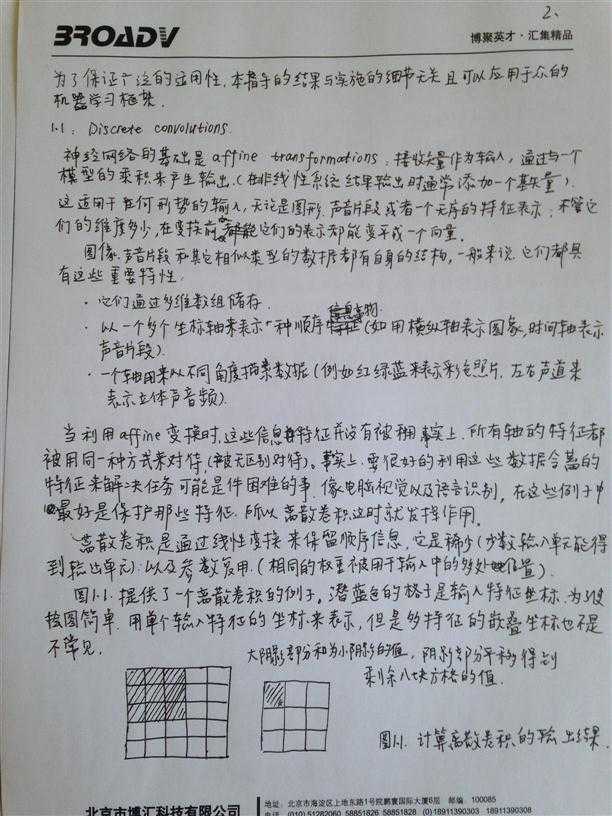 2.
BROADV
博聚英才·汇集精品
为了保证广泛的适用性，本指导的结果与实施的细节无关且可以应用于众的
机器学习框架.
1.1. Discrete convolutions.
神经网络的基础是affine transformations：接收矢量作为输入，通过与一个
模型的乘积来产生输出.(在非线性系统结果输出时通常添加一个基矢量).
这适用于任何形势的输入，无论是图形.声音片段或者一个无序的特征表示：不管它
们的维度多少，在变换前它们的表示都能变平成一个向量.
图像.声音片段和其它相似类型的数据都有自身的结构，一般来说.它们都具
有这些重要特性：
·它们通过多维数组储存.
·以一个多个坐标轴来表示一种顺序信息(如用横纵轴表示图象，时间轴表示
声音片段).
·一个轴用来以不同角度描素数据(例如红绿蓝来表示彩色照片.左右声道来
表示立体声音频).
当利用affine变换时，这些信息特征并没有被 事实上.所有轴的特征都
被用同一种方式来对待，(被无区别对待)。事实上.要很好的利用这些数据含蓄的
特征来解决任务可能是件困难的事.像电脑视觉以及语言识别，在这些例子中
最好是保护那些特征.所以离散卷积这时就发挥作用。
离散卷积是通过线性变换来保留顺序信息，它是稀少(少数输入单元能得
到输出单元)以及参数复用.(相同的权重被用于输入中的多处位置).
图1.1.提供了一个离散卷积的例子。潜蓝色的格子是输入特征坐标.为了使
绘图简单.用单个输入特征的坐标来表示，但是多特征的嵌叠坐标也不是
不常见.
大阴影部分和为小阴影的值，阴影部分平移得到
剩余八块方格的值.
图1.1.计算离散卷积的输出结果.
北京市博汇科技有限公司
地址：北京市海淀区上地东路1号院鹏寰国际大厦6层 邮编：100085
电话：(010) 51282060 58851826 58851828 (0)18911390303 18911390308